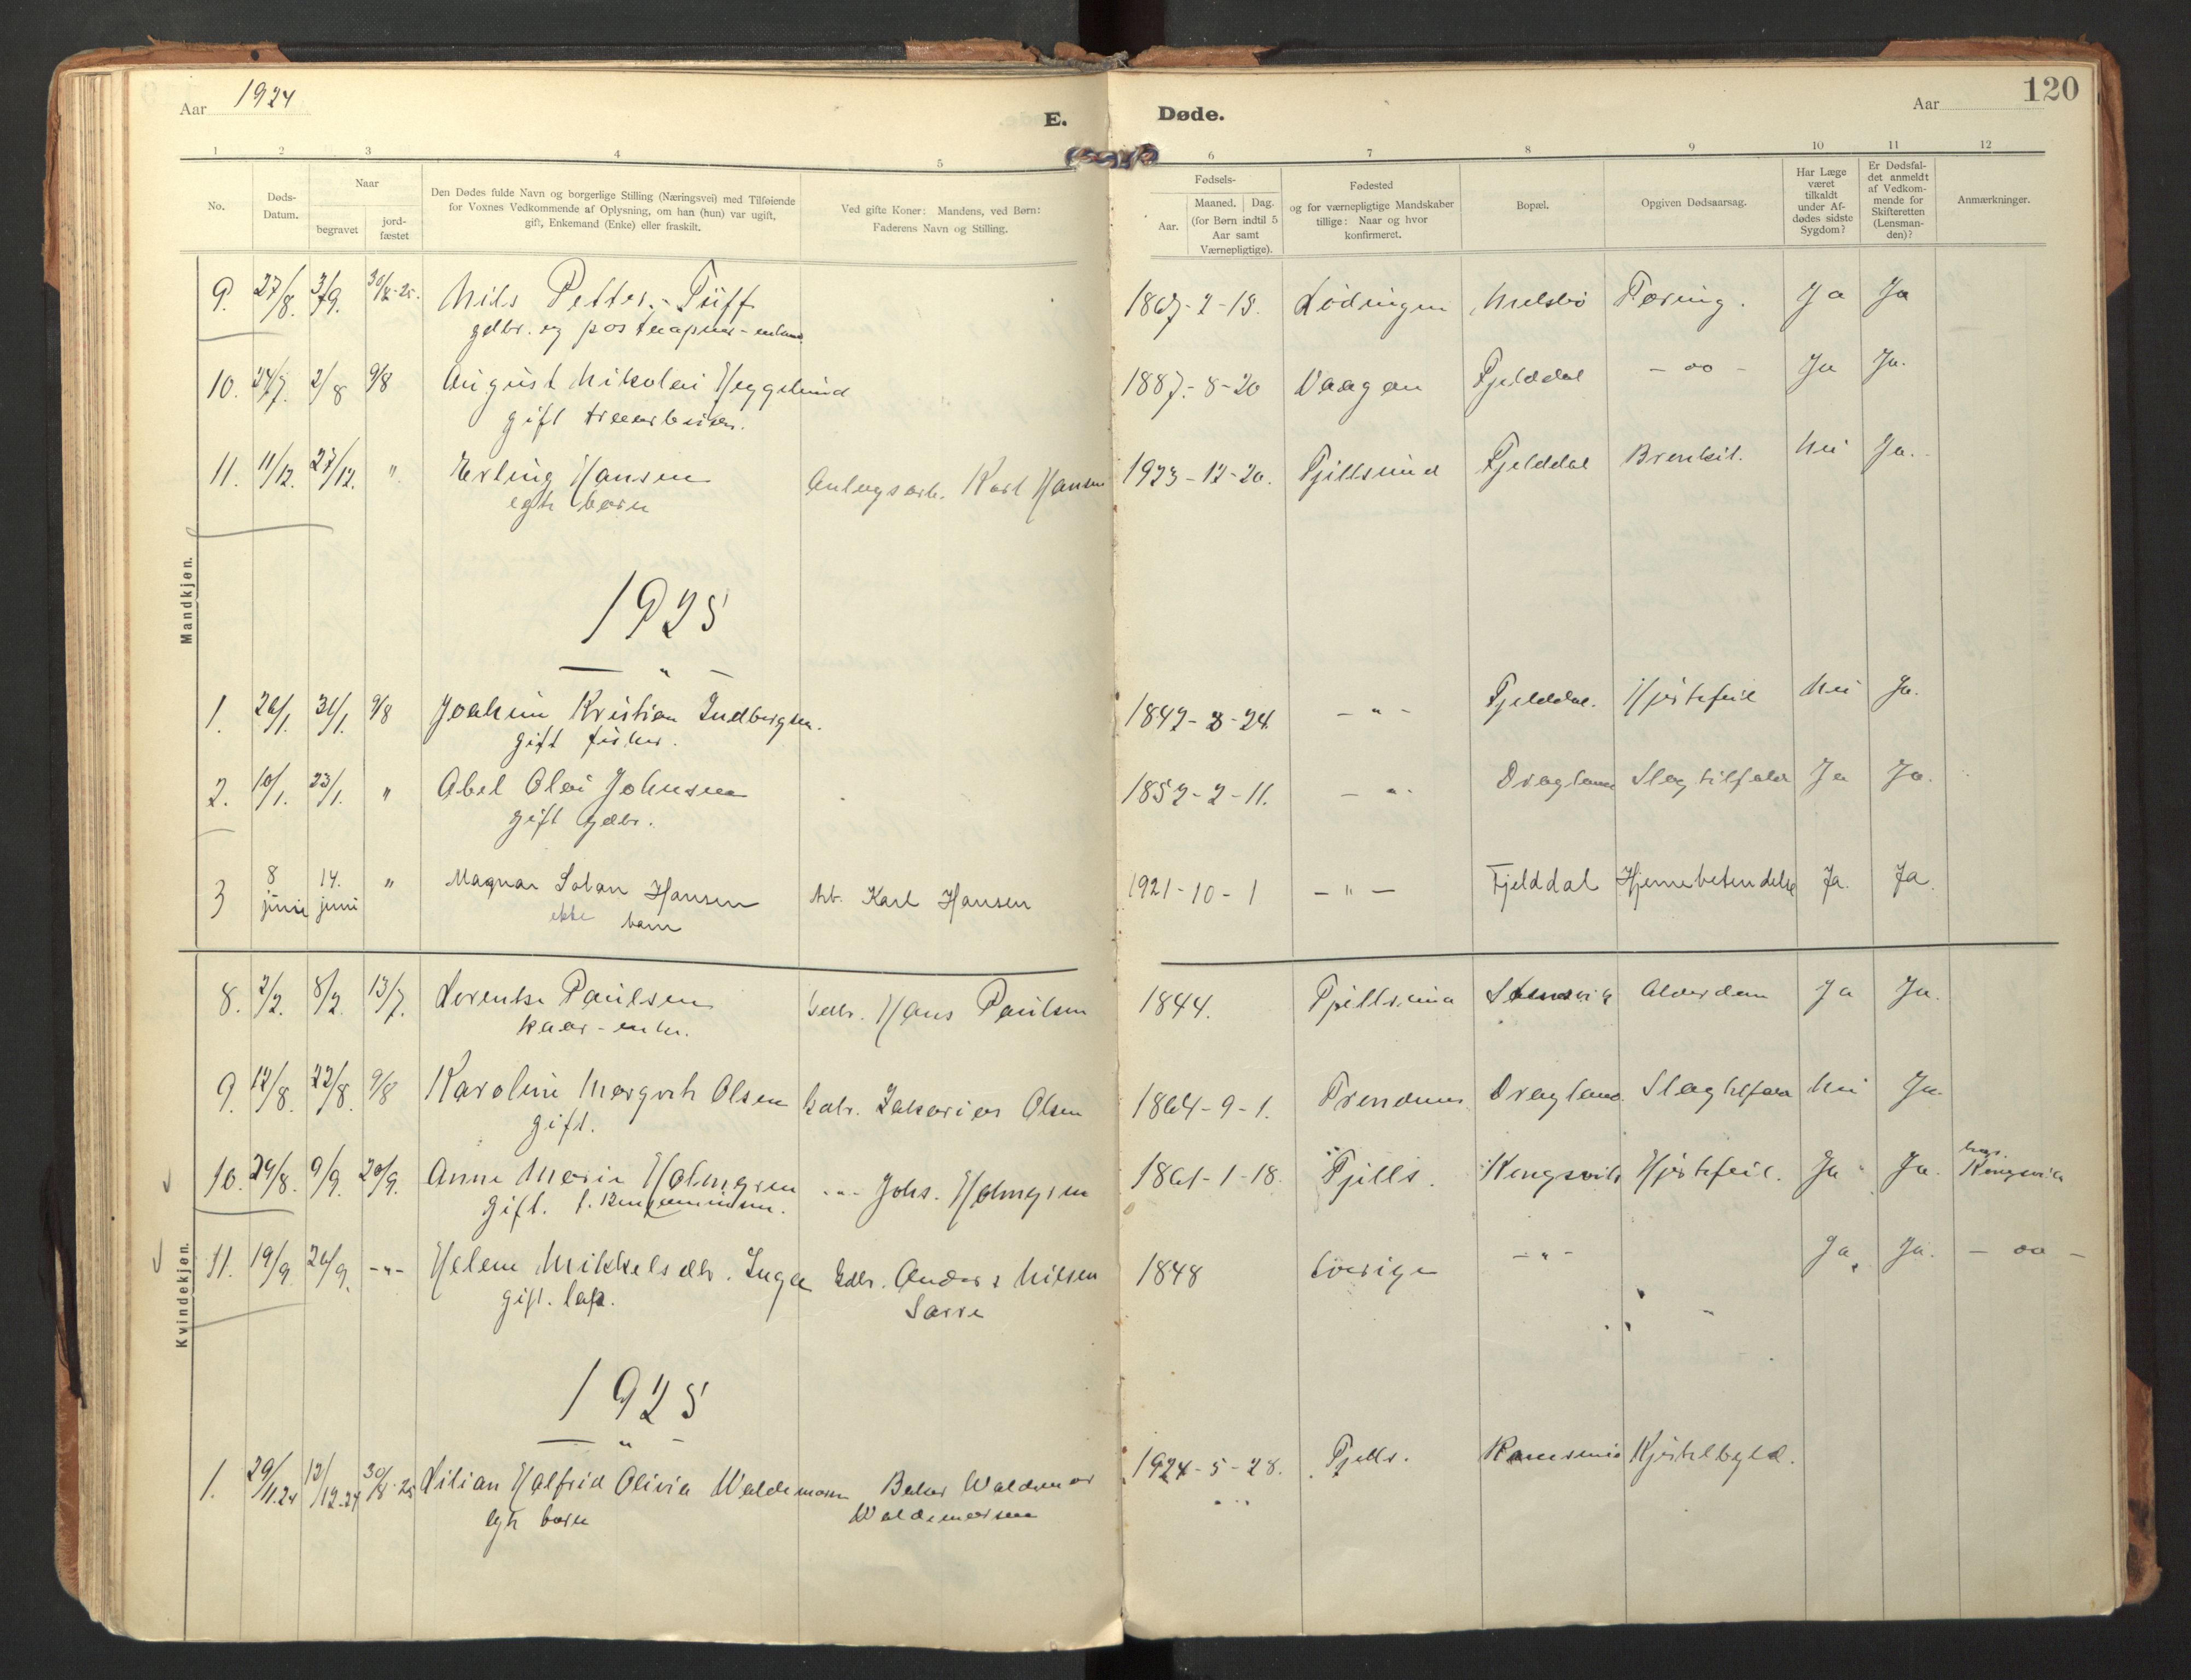 Aar 1924
E.
Døde.
Aar
120
1 2 3 4 5 6 7 8 9 10 11 12
No.
Døds-
Datum.
Naar
begravet
jord-
fæstet
Den Dødes fulde Navn og borgerlige Stilling (Næringsvei) med Tilføiende
for Voxnes Vedkommende af Oplysning, om han (hun) var ugift,
gift, Enkemand (Enke) eller fraskilt.
Ved gifte Koner: Mandens, ved Børn:
Faderens Navn og Stilling.
Fødsels-
Aar.
Maaned. Dag.
(for Børn indtil 5
Aar samt
Værnepligtige).
Fødested
og for værnepligtige Mandskaber
tillige: Naar og hvor
konfirmeret.
Bopæl.
Opgiven Dødsaarsag.
Har Læge
været
tilkaldt
under Af-
dødes sidste
Sygdom?
Er Dødsfal-
det anmeldt
af Vedkom-
mende for
Skifteretten
(Lensman-
den)?
Anmærkninger.
Mandkjøn.
9. 27/8. 3/9. 30/8-25. Nils Petter Tüff 1867-2-18. Lødingen Tæring. Ja Ja
gdbr. og postaapner-enkem.
10. 24/7. 2/8 9/8 August Nikolai Heggelund 1887-8-20 Vaagan Fjelddal -oo- Ja Ja.
gift
11. 11/12. 27/12. " Erling Hansen Anlegsarb. Karl Hansen 1923-12-20. Fjellsund Fjelddal Nei Ja.
egte barn
1925
- " -
1. 26/1. 31/1. 9/8 Joakim Kristian Indbergsen. 1847-8-24. - " - Fjelddal. Hjertefeil Nei Ja.
gift fisker.
2. 10/1. 23/1. " Abel Olai Johnsen 1852-2-11. - " - Dragland Slagtilfæld Ja Ja.
gift gdbr.
3 8 juni 14. juni " Magnar Johan Hansen Arb. Karl Hansen 1921-10-1 - " - Fjelddal Hjernebetendelse Ja. Ja.
ekte barn
Kvindekjøn.
8. 2/2. 8/2. 13/7. Lorentse Paulsen Gdbr. Hans Paulsen 1844. Alderdom Ja Ja.
kaar-enke.
9. 12/8. 22/8. 9/8 Karoline Margret Olsen Gdbr. Zakarias Olsen 1864-9-1. Trondenes Dragland Slagtilfæld Nei Ja.
gift.
10. 29/8. 9/9. 20/9. Anne Marie Holmgren -"- Johs. Holmgren 1861-1-18. Fjells. Kongsvik Hjertefeil. Ja Ja. Kongsvik
gift. f. Benjaminsen.
11. 19/9. 26/9. -"- Helene Mikkelsdtr. Inga Gdbr. Anders Nilsen 1848 Sverige - " - Ja. Ja. - oo -
gift. lap. Sarre
1925
- " -
1. 29/11.24 12/12.24 30/8.25 Lilian Halfrid Olivia Waldemarsen Baker Waldemar 1924-5-28. Fjells. Ramsund Kjertelbyld.
egte barn Waldemarsen